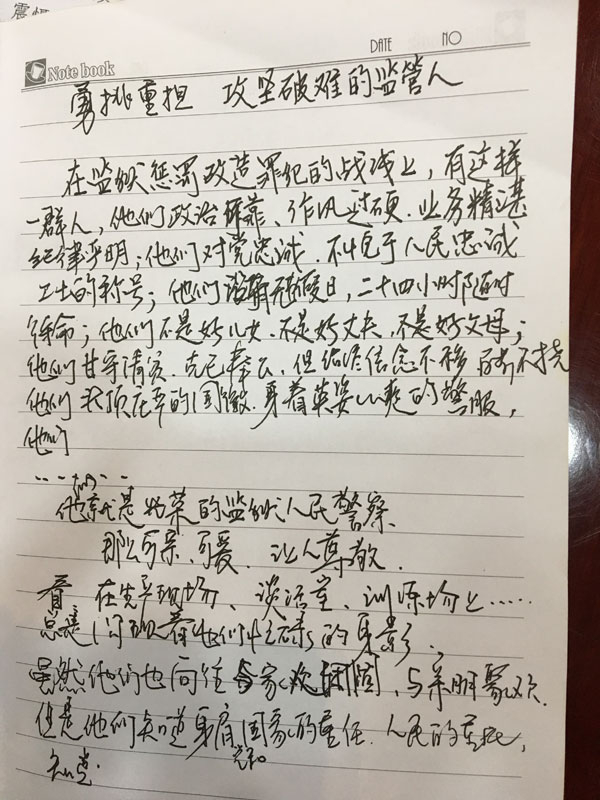 震
DATE NO
Note book
勇挑重担 攻坚破难的监管人
在监狱惩罚改造罪犯的战线上，有这样
一群人，他们政治可靠、作风过硬、业务精湛
纪律严明；他们对党忠诚、不愧于人民忠诚
卫士的称号；他们没有休假日，二十四小时随时
待命；他们不是好儿女、不是好丈夫、不是好父母；
他们甘守清贫、克己奉公、但始终信念不移
他们头顶庄严的国徽、身着英姿飒爽的警服，
他们
……
他们就是光荣的监狱人民警察
那么可亲、可爱、让人尊敬
看 在生产现场、谈话室、训练场上……
总是闪现着他们忙碌的身影，
虽然他们也向往合家欢团圆，与亲朋聚欢
但是他们知道身肩国家的重任、人民的重托，
党和